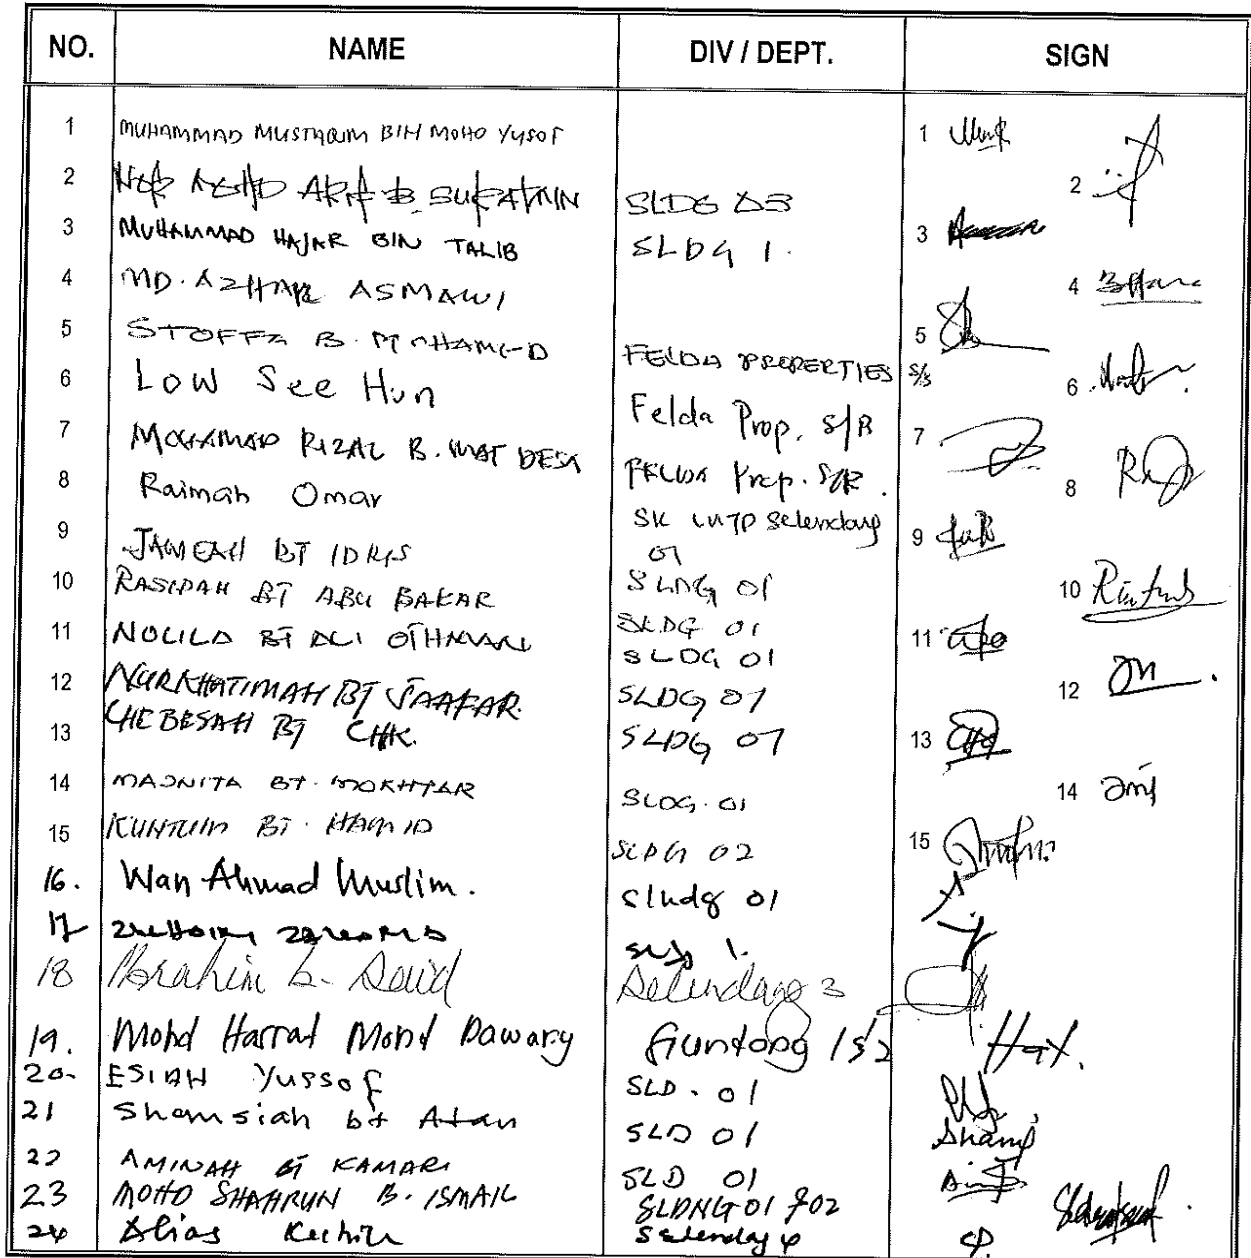 NO. NAME DIV / DEPT. SIGN
1 MUHAMMAD MUSTAQIM BIN MOHD YUSOF 1
2 SUKATMIN SLDG 03 2
3 MUHAMMAD HAJAR BIN TALIB SLDG 1. 3
4 MD. AZHAR ASMAWI 4
5 STOFFA B. MOHAMED FELDA PROPERTIES S/B 5
6 Low See Hun Felda Prop. S/B 6
7 MOHAMAD RIZAL B. MAT DESA FELDA Prop. S/B. 7
8 Raimah Omar SK LNTP Selendang 01 8
9 JAMEAH BT IDRIS SLDG 01 9
10 RASIDAH BT ABU BAKAR SLDG 01 10
11 BT ALI OTHMAN SLDG 01 11
12 NURKHATIMAH BT JAAFAR. SLDG 01 12
13 CHE BESAH BT CHIK. SLDG 01 13
14 MASNITA BT. MOKHTAR SLDG. 01 14
15 KUNTUM BT. HAMID SLDG 02 15
16. Wan Ahmad Muslim. Sludg 01
17 1.
18 Ibrahim b. Daud Selendang 3
19. Mohd Harrat Mohd Dawary Guntong 1 & 2 Hat.
20. ESIAH Yussof SLD. 01
21 Shamsiah bt Atan SLD 01 Shams
22 AMINAH BT KAMARI SLD 01
23 MOHD SHAHRUN B. ISMAIL SLDNG 01 & 02
24 Alias Kechik Selendag 4